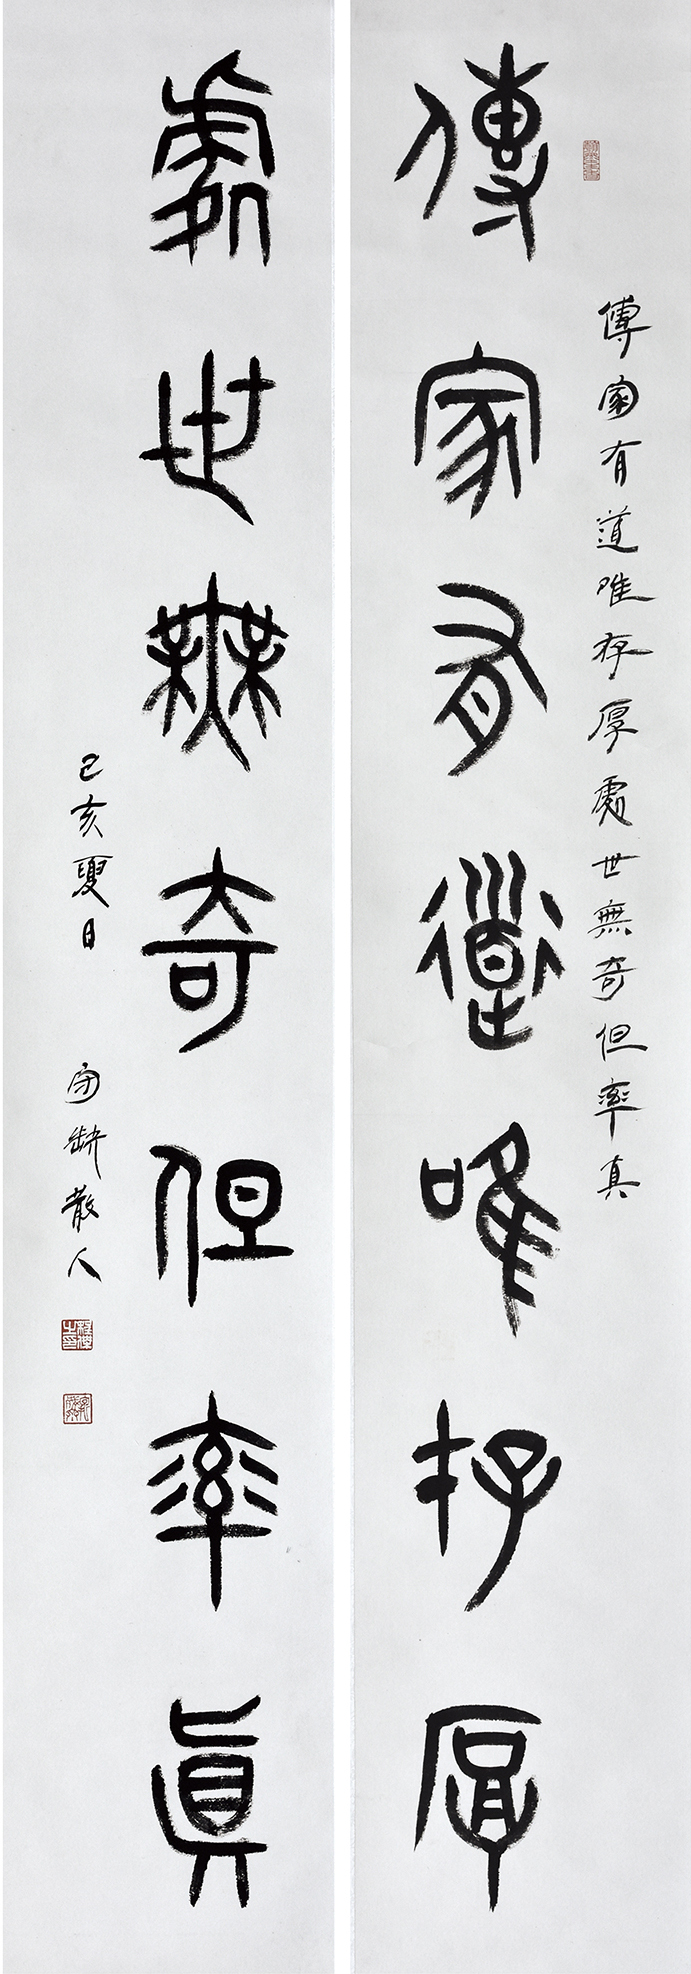 傳家有道唯存厚
傳家有道唯存厚處世無奇但率真
處世無奇但率真
己亥夏日
缺散人